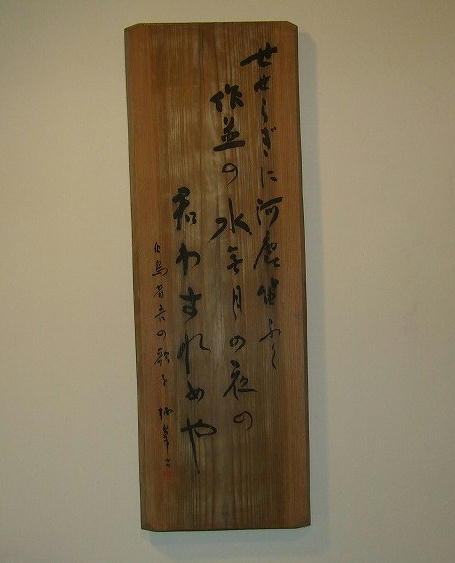 せせらぎに河鹿笛ふく
作並の水無月の夜の
君わすれめや
白鳥省吾の歌を